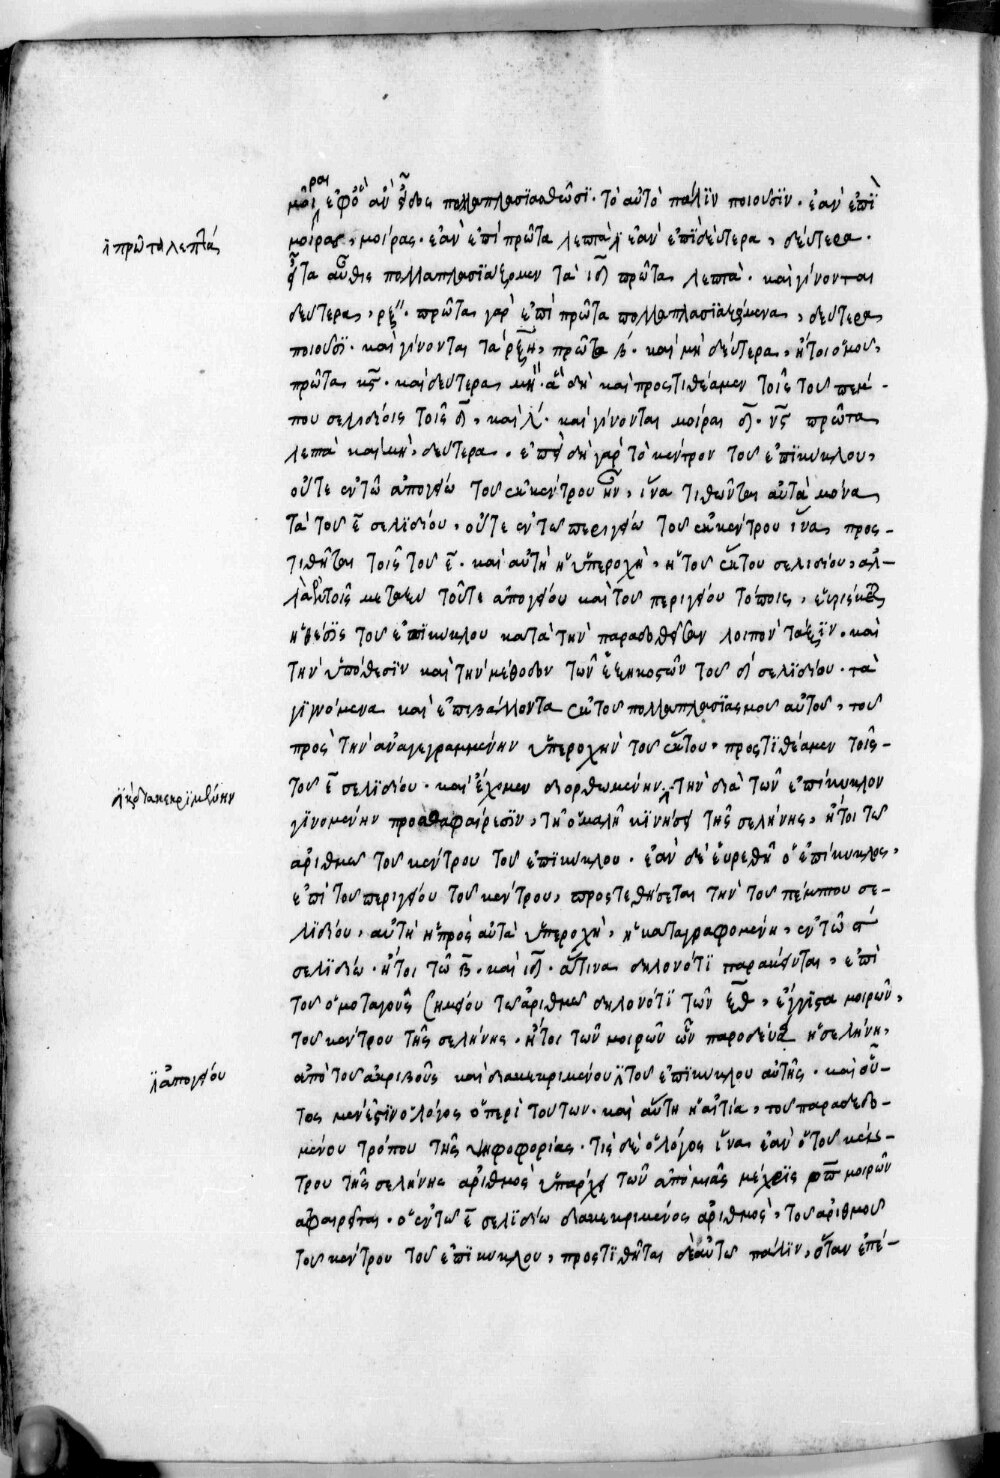 μοῖραι ἐφ' ὃ ἂν εἶδος πολλαπλασιασθῶσϊ. τὸ αὐτὸ πάλϊν ποιουσϊν. ἐὰν ἐπῒ
ἢ πρῶτα λεπτά
μοίρας, μοίρας. ἐὰν ἐπὶ πρῶτα λεπτὰ ἐὰν ἐπὶ δεύτερα, δεύτερα.
εἶτα αὖθις πολλαπλασϊάζομεν τὰ ιδ πρῶτα λεπτὰ. καὶ γίνονται
δεύτερα, ρξ. πρῶτα γὰρ ἐπὶ πρῶτα πολλαπλασϊαζόμενα, δεύτερα
ποιουσϊ. καὶ γίνονται τὰ ρξη, πρῶτα β. καὶ μη δεύτερα, ἤτοι ὁμου,
πρῶτα κϛ. καὶ δεύτερα μη. ἃ δὴ καὶ προςτιθέαμεν τοῖς του πεμ-
που σελιδίοις τοῖς δ, καὶ λ. καὶ γίνονται μοίραι δ. νϛ πρῶτα
λεπτὰ καὶ μη, δεύτερα. ἐπεὶ δὴ γὰρ τὸ κέντρον του ἐπϊκύκλου,
οὔτε ἐν τῶ ἀπογείω του ἐκκέντρου ἦν, ἵνα τιθῶνται αὐτὰ μόνα
τὰ του ε σελϊδίου, οὔτε ἐν τω περιγείω του ἐκκέντρου ἵνα προς-
τιθῆται τοῖς του ε. καὶ αὐτὴ ἡ ὑπεροχὴ, ἡ του ἕκτου σελιδίου, ἀλ-
λὰ ἐν τοῖς μεταξυ τοῦτε ἀπογείου καὶ του περιγείου τόποις, εὑρίσκεται
ἡ θέσϊς του ἐπϊκύκλου κατὰ τὴν παραδοθεῖσαν λοιπὸν τάξϊν. καὶ
τὴν ὑπόθεσϊν καὶ τὴν μέθοδον τῶν ἑξηκοςῶν του σελϊδίου. τὰ
γϊνόμενα καὶ ἐπιβάλλοντα ἐκ του πολλαπλασϊασμου αὐτου, του
πρὸς τὴν ἀναγεγραμμένην ὑπεροχὴν του ἕκτου, προςτϊθέαμεν τοῖς-
ἢ κ διακεκρϊμένην
του ε σελϊδίου. καὶ ἔχομεν διορθωμένην τὴν διὰ τῶν ἐπίκυκλον
γϊνομένην προσθαφαίρεσϊν, τῆ ὁμαλῆ κϊνήσει τῆς σελήνης, ἤτοι τω
ἀριθμω του κέντρου του ἐπϊκύκλου. ἐὰν δὲ εὑρεθῆ ὁ ἐπίκυκλος,
ἐπὶ του περιγείου του κέντρου, προςτεθήσεται τὴν του πέμπτου σε-
λϊδίου, αὐτὴ ἡ πρὸς αὐτὰ ὑπεροχὴ, ἡ καταγραφομένη, ἐν τῶ ϛ
σελϊδίω. ἤτοι τῶ β. καὶ ιδ. ἅτινα δηλονότϊ παρακεῖνται, ἐπὶ
του ὁμοταγοῦς σημείου τω ἀριθμω δηλονότϊ τῶν , ἔγγϊςα μοιρῶν,
του κέντρου τῆς σελήνης. ἤτοι τῶν μοιρῶν ὧν παροδεύει ἡ σελήνη,
ἢ ἀπογείου
ἀπὸ του ἀκριβοῦς καὶ διακεκριμένου του ἐπϊκύκλου αὐτῆς. καὶ οὗ-
τος μέν ἐςϊν ὁ λόγος ὁ περὶ τουτων. καὶ αὕτη ἡ αἰτία, του παραδεδο-
μένου τρόπου τῆς ψηφοφορίας. τις δὲ ὁ λόγος ἵνα ἐὰν ὁ του κέν-
τρου τῆς σελήνης ἀριθμὸς ὑπάρχει τῶν ἀπὸ μιᾶς μέχρϊς ρπ μοιρῶν
ἀφαιρεῖται. ὁ ἐν τω ε σελϊδίω διακεκριμένος ἀριθμὸς, του ἀριθμου
του κέντρου του ἐπϊκύκλου, προςτϊθῆται δὲ αὐτω πάλϊν, ὅταν ἐπέ-